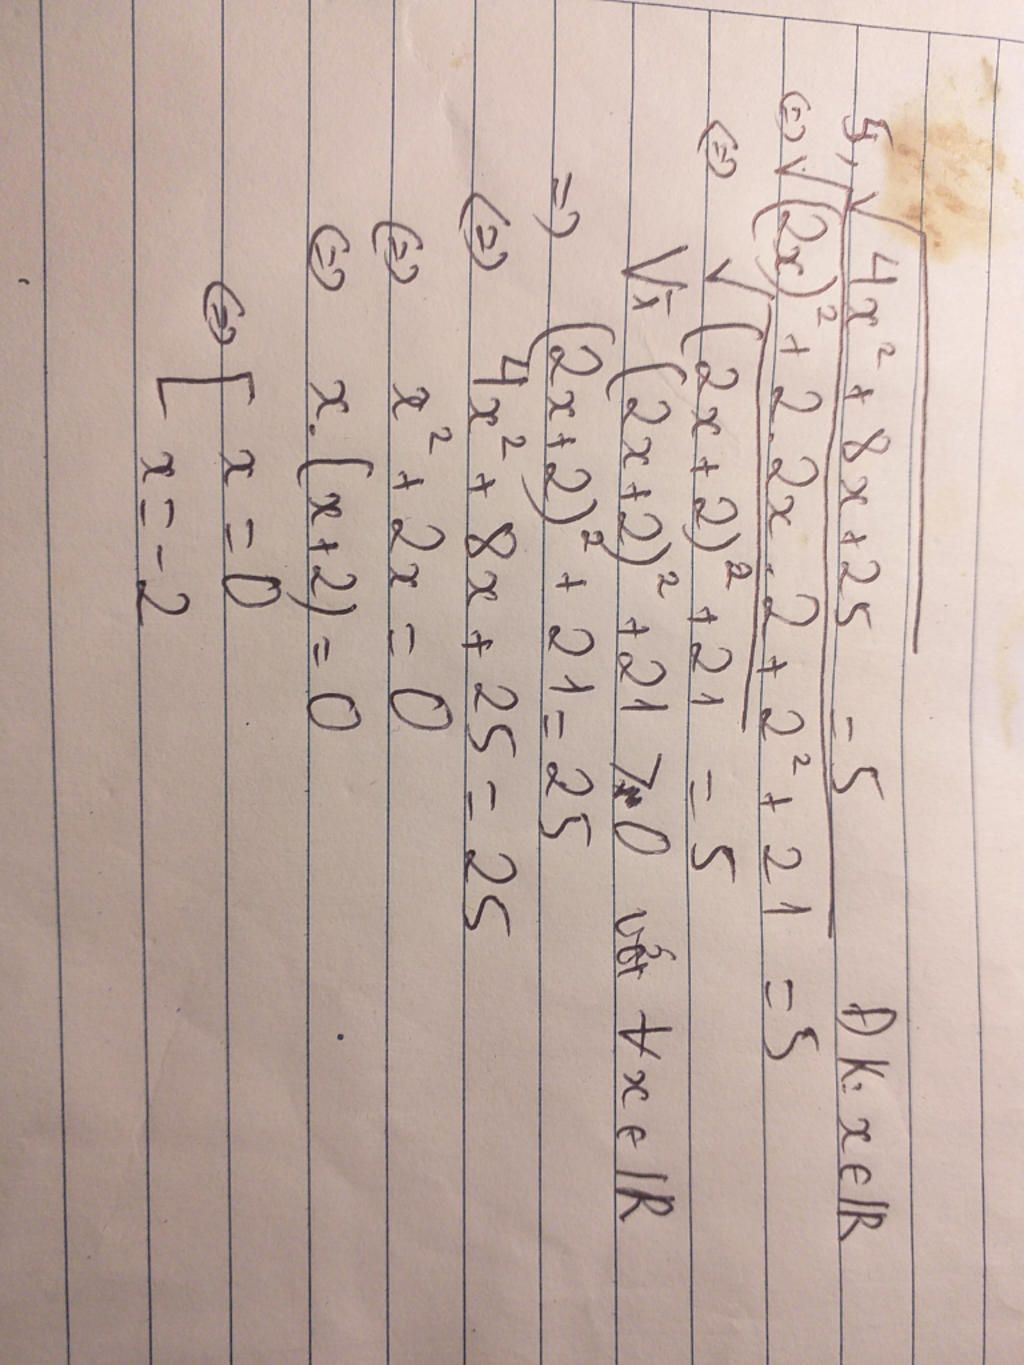 5, √(4x² + 8x + 25) = 5 ĐK: x ∈ ℝ
⇔ √((2x)² + 2.2x.2 + 2² + 21) = 5
⇔ √((2x+2)² + 21) = 5
Vì (2x+2)² + 21 > 0 với ∀x ∈ ℝ
=> (2x+2)² + 21 = 25
⇔ 4x² + 8x + 25 = 25
⇔ x² + 2x = 0
⇔ x.(x+2) = 0
⇔ [ x = 0
x = -2